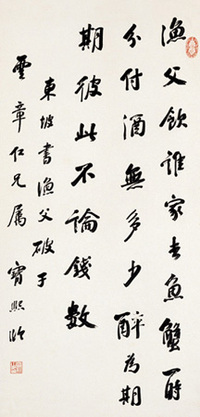 漁父飲誰家去魚蟹一時
分付酒無多少醉為期
期彼此不論錢數
東坡書漁父破子
雲章仁兄属 寶熙臨